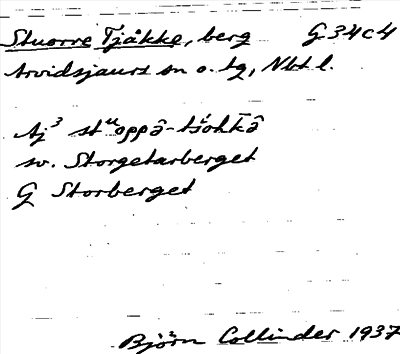 Stuorre Tjåkke, berg G 34 c 4
Arvidsjaurs sn o. tg, Nbt l.
Aj³ stᵘoppâ-tšǒhkâ
sv. Storgetarberget
G Storberget
Björn Collinder 1937